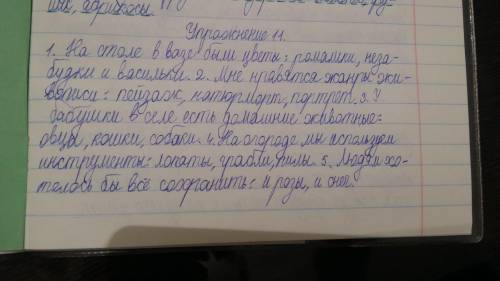 ши, абрикосы.
Упражнение 11.
1. На столе в вазе были цветы: ромашки, неза-
будки и васильки. 2. Мне нравятся жанры жи-
вописи: пейзаж, натюрморт, портрет. 3. У
бабушки в селе есть домашние животные:
овцы, кошки, собаки. 4. На огороде мы используем
инструменты: лопаты, грабли, пилы. 5. Людям хо-
телось бы всё сохранить: и розы, и снег.